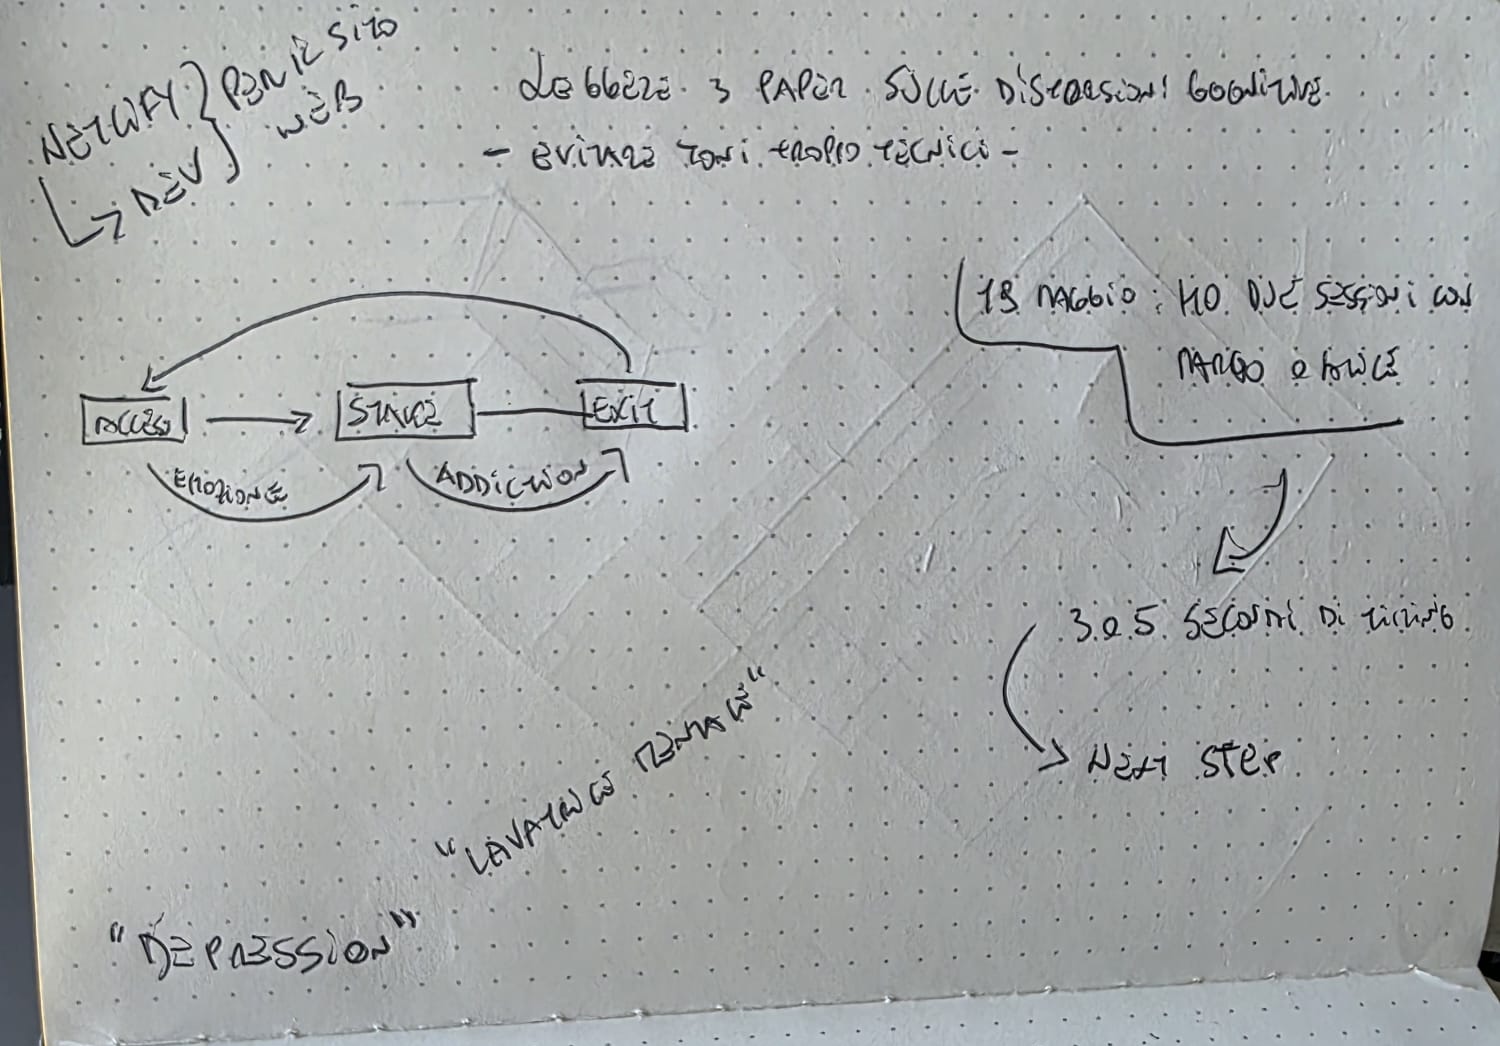 NETLIFY } PER IL SITO
DEV } WEB
LEGGERE 3 PAPER SULLE DISTORSIONI COGNITIVE
- EVITARE TONI TROPPO TECNICI -
ACCESSO
STALLO
EXIT
EMOZIONE
ADDICTION
19 MAGGIO: HO DUE SESSIONI CON
MARCO E ALICE
3 O 5 SECONDI DI TIMING
NEXT STEP
"LAVATRICE MENTALE"
"DEPRESSION"